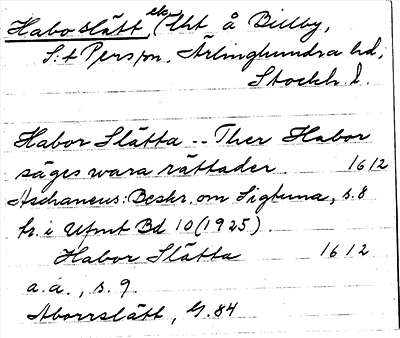 Haboslätt, eko, Uht å Billby,
S:t Pers sn. Ärlinghundra hd,
Stockh. l.
Habor Slätta -- Ther Habor
säges wara rättader. 1612
Aschaneus: Beskr. om Sigtuna, s. 8
tr. i Ufmt Bd 10 (1925).
Habor Slätta 1612
a.a., s. 9.
Aborrslätt, G. 84